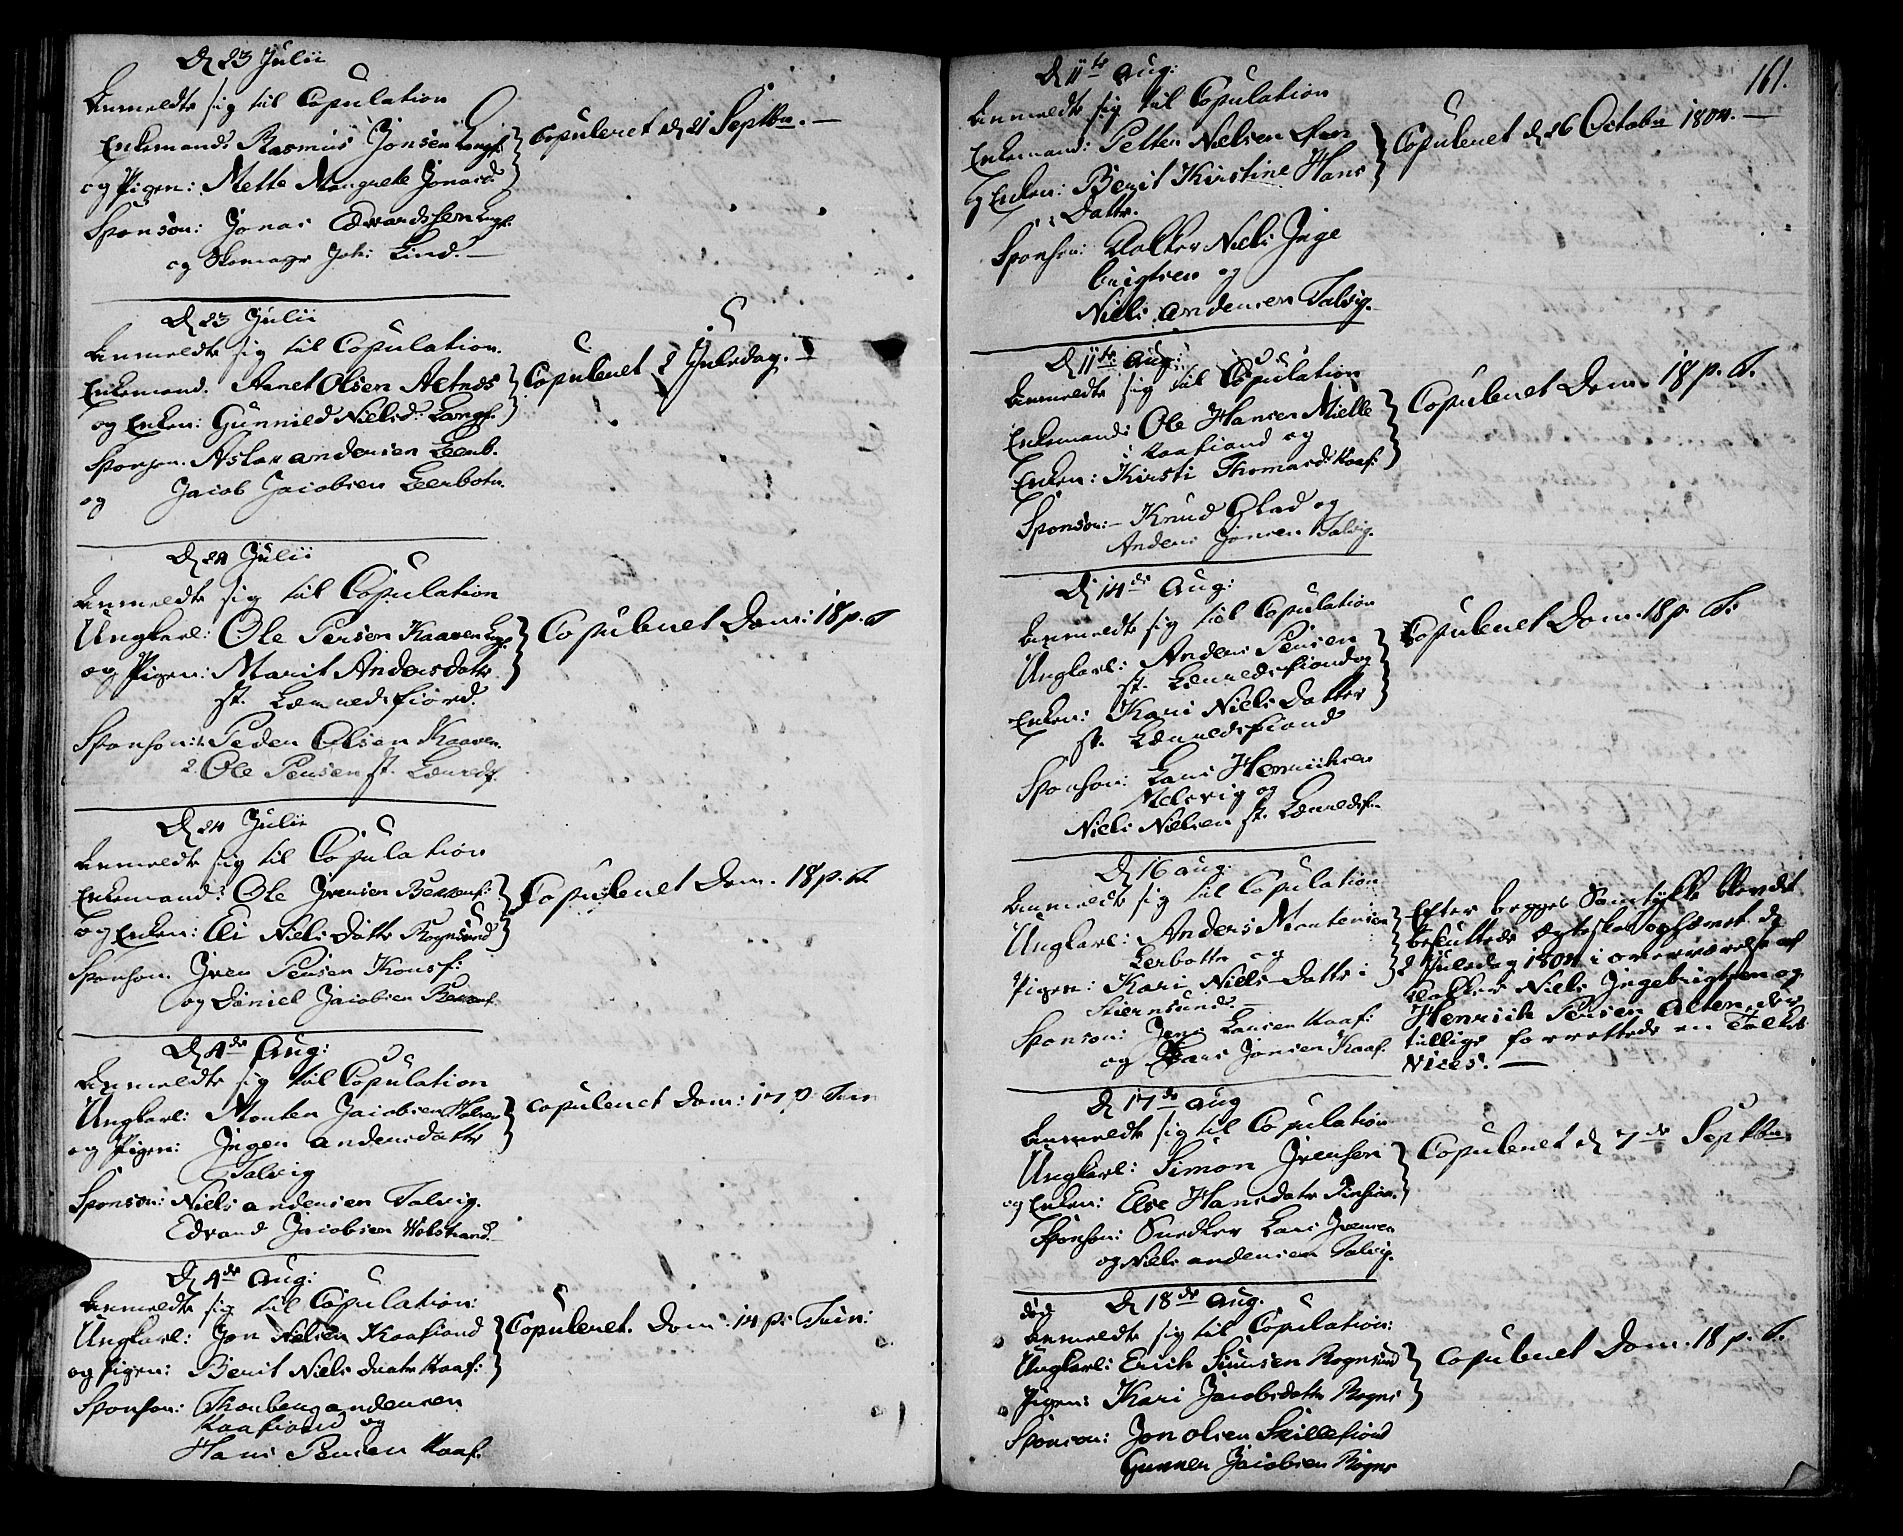 D 23 Julii
Anmeldte sig til Copulation
Enkemand: Rasmus Jonsen Langf:
og Pigen: Mette Margrete Jonasd.
Sponsor: Jonas Edvardssen Langf.
og Skomager Joh: Lind.
Copuleret d 21 Septbr.
D 23 Julii
Anmeldte sig til Copulation.
Enkemand. Arnet Olsen Aetnes
og Enken: Gunnild Nielsd: Langf.
Sponsor. Aslax Andersen Leerb.
og Jacob Jacobsen Leerbotn.
Copuleret 2 Juledag.
D 24 Julii
Anmeldte sig til Copulation
Ungkarl: Ole Persen Kaaven Langf
og Pigen: Marit Andersdatr
st. Lærredsfiord.
Sponsor: 1. Peder Olsen Kaaven.
2. Ole Persen st. Lærredsf.
Copuleret Dom: 18 p. T
D 24 Julii
Anmeldte sig til Copulation
Enkemand: Ole Iversen Bekkerf:
og Enken: Eli Niels Datter Rognsund
Sponsor. Iver Persen Korsf:
og Daniel Jacobsen Bekkerf.
Copuleret Dom. 18 p. T.
D 4de Aug:
Anmeldte sig til Copulation
Ungkarl: Morten Jacobsen
og Pigen: Inger Andersdatter
Talvig
Sponsor: Niels Andersen Talvig.
Edvard Jacobsen Wolstrand.
Copuleret Dom: 17 p. Trin
D 4de Aug:
Anmeldte sig til Copulation:
Ungkarl: Jon Nilsen Kaafiord
og Pigen: Berit Niels Datter Kaaf:
Sponsor: Thorberg Andersen
Kaafiord og
Hans Persen Kaaf.
Copuleret. Dom. 14 p: Trin:
161.
D 11te Aug:
Anmeldte sig til Copulation
Enkemand: Petter Nielsen
og Enken: Berit Kirstine Hans
Datter.
Sponsor: Klokker Niels Inge
brigtsen og
Niels Andersen Talvig.
Copuleret d 26 October 1804.
D 11te Aug:
Anmeldte sig til Copulation
Enkemand: Ole Hansen Mielle
i Kaafiord og
Enken: Kirsti Thomasd: Kaaf:
Sponsor: Knud Glad og
Anders Jonsen Talvig.
Copuleret Dom. 18 p. T.
D 14de Aug:
Anmeldte sig til Copulation
Ungkarl: Anders Persen
st. Lærredsfiord og
Enken: Kari Niels Datter
st. Lærredsfiord
Sponsor: Lars Henriksen
Melsvig og
Niels Nielsen st. Lærredsf.
Copuleret Dom. 18 p. T.
D 16 Aug:
Anmeldte sig til Copulation
Ungkarl: Anders Mortensen
Lerbotten og
Pigen: Kari Niels-Datter i
Stiernsund
Sponsor: Jens Larsen Kaaf:
og Lars Jonsen Kaaf.
Efter begges Samtykke blevdt
besluttede Ægteskab ophævet d
2 Juledag 1804 i overværelse af
Klokker Niels Ingebrigtsen og
Henrich Persen Alten, der
tillige forrettede en Tolkes
Vices.
D 17de Aug
Anmeldte sig til Copulation
Ungkarl: Simon Iversen
og Enken: Else Hansdatr
Sponsor: Snedker Lars Iversen
og Niels Andersen Talvig.
Copuleret d 7de Septbr
død D 18de Aug.
Anmeldte sig til Copulation:
Ungkarl: Erich Simsen Rognsund
Pigen: Kari Jacobsdatter Rogns
Sponsor: Jon Olsen Skillefiord
Gunner Jacobsen Rogns
Copuleret Dom. 18 p. T.